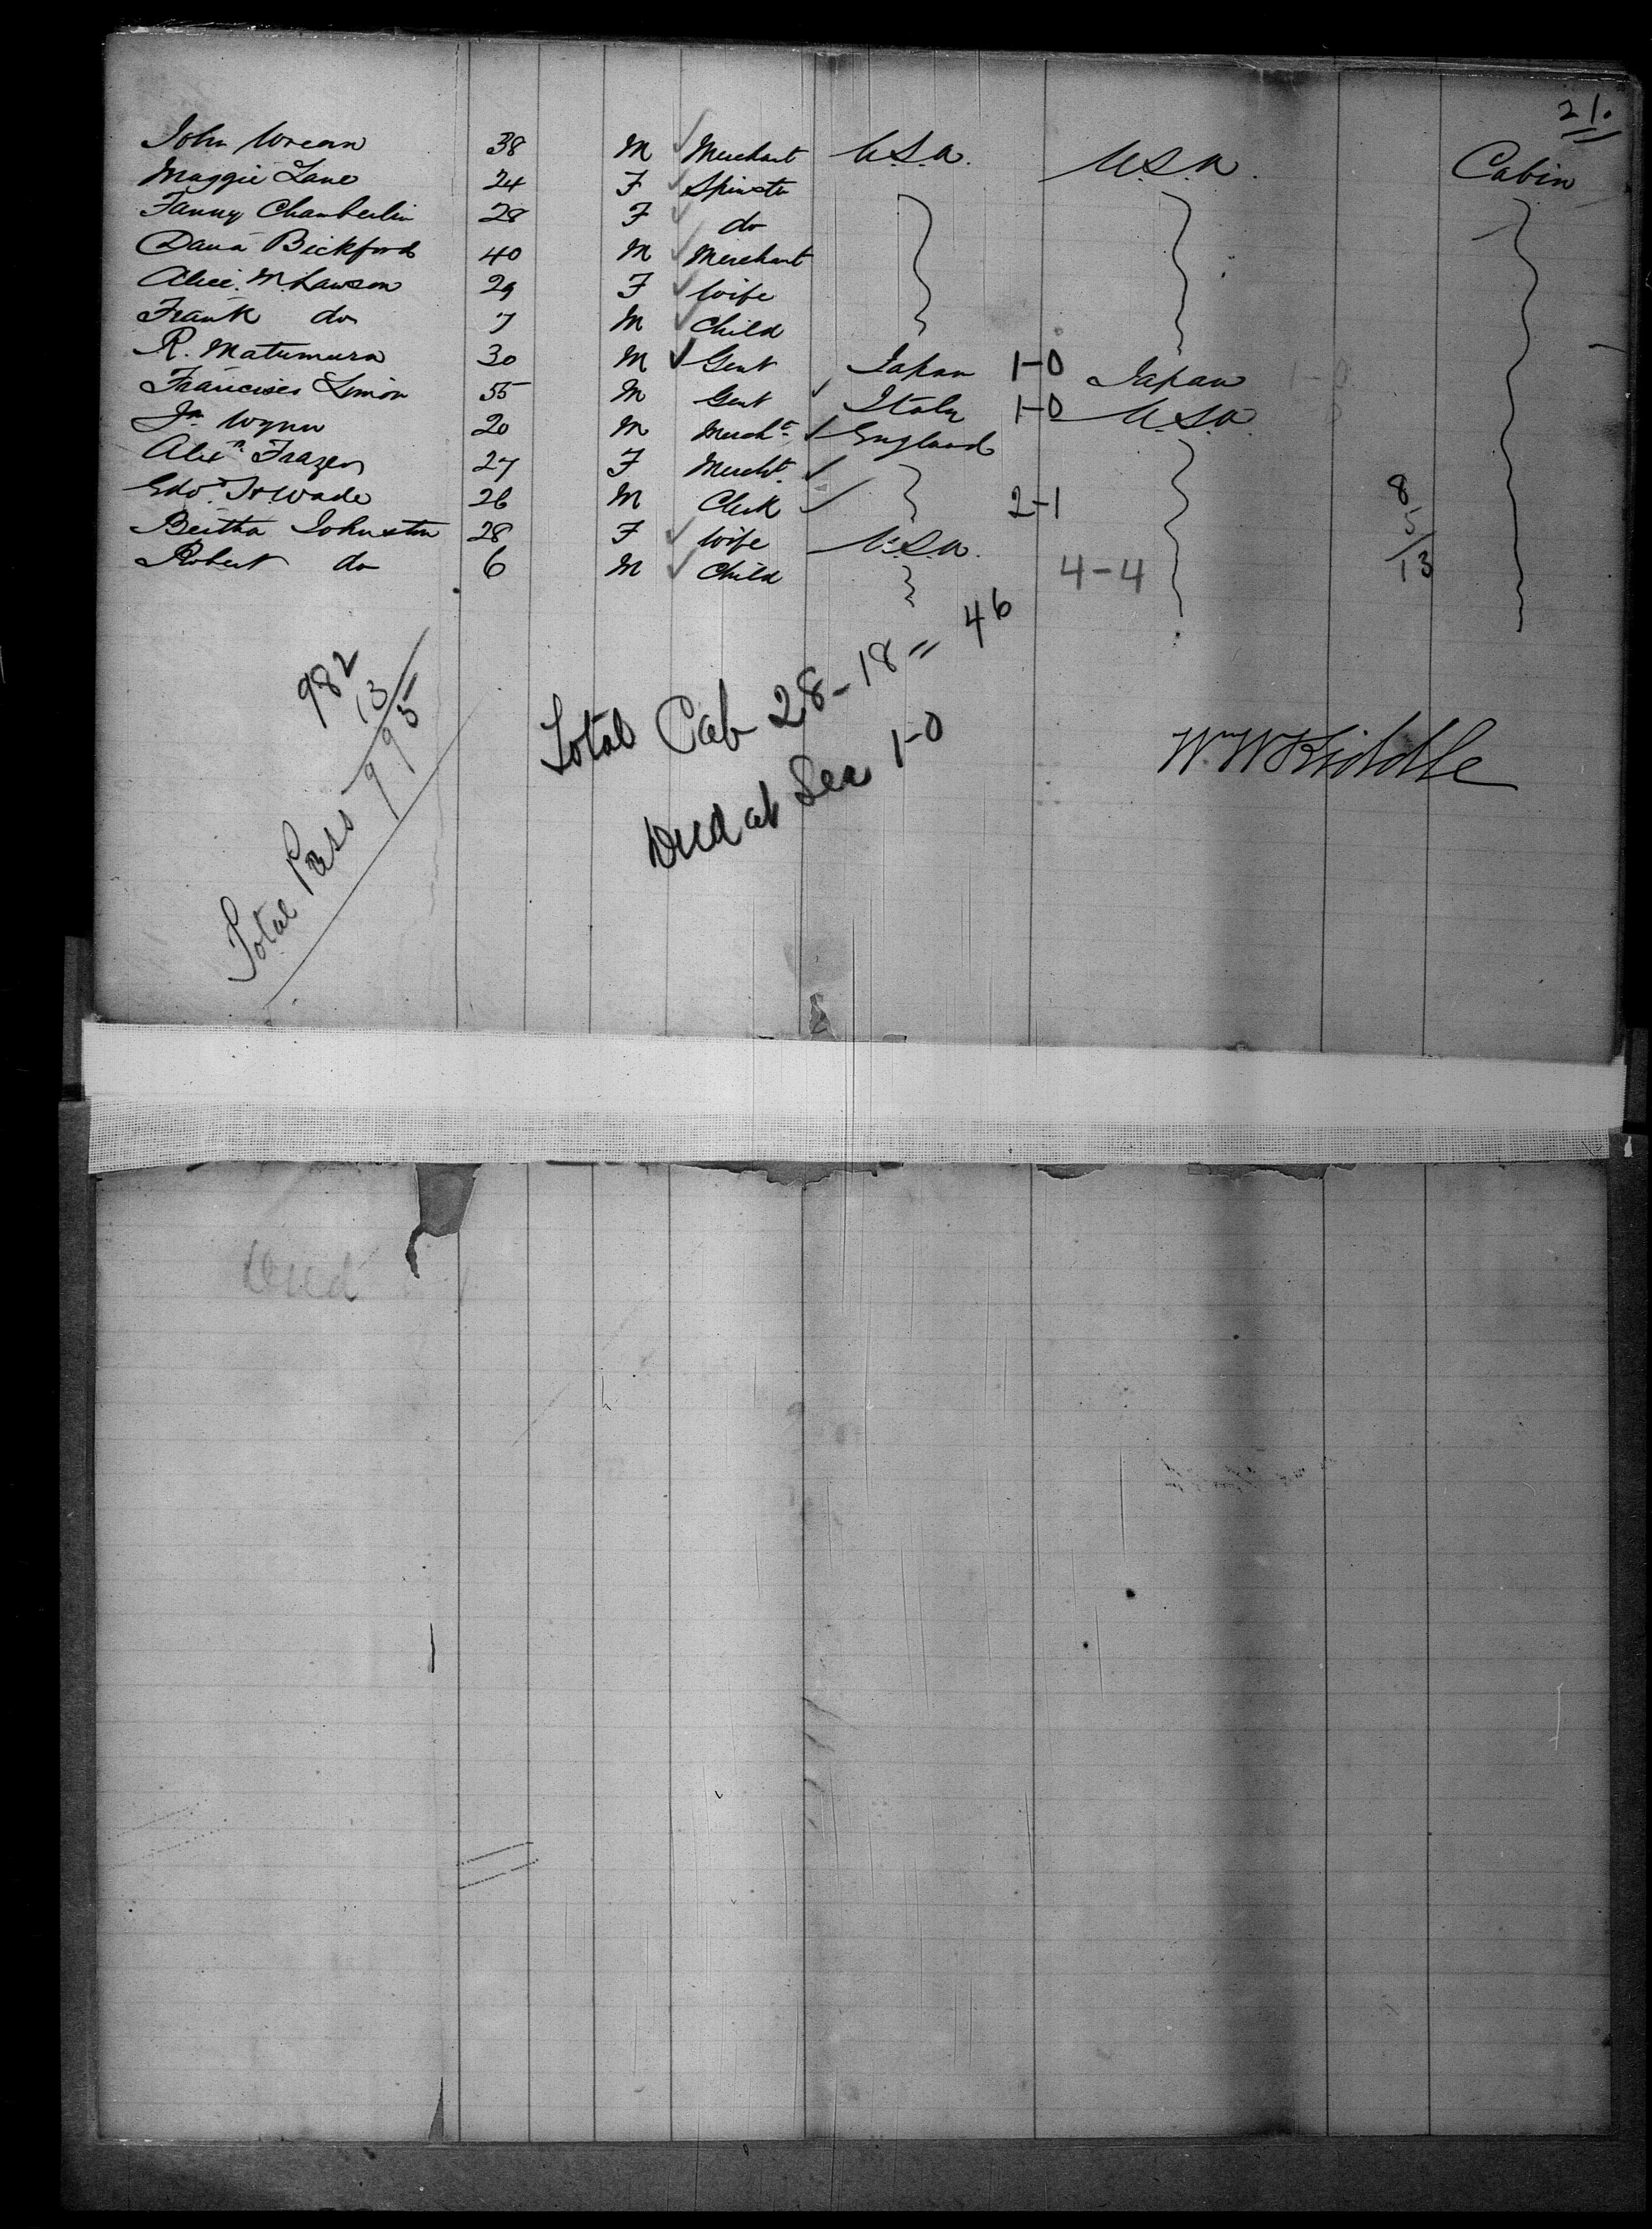 21.
John Wrean 38 M Merchant U.S.A. U.S.A. Cabin
Maggie Lane 24 F Spinster
Fanny Chamberlin 28 F do
Dana Bickford 40 M Merchant
Alice M. Lawson 29 F Wife
Frank do 7 M Child
R. Matumura 30 M Gent Japan 1-0 Japan 1-0
Francisco Simon 55 M Gent Italy 1-0 U.S.A.
Jn Wynn 20 M Mercht England
Alexr Frazer 27 F Mercht
Edwd H. Wade 26 M Clerk 2-1 8
5
Bertha Johnston 28 F Wife U.S.A.
Robert do 6 M Child 4-4 13
982
13
Total Pass 995
Total Cab 28-18 = 46
Died at Sea 1-0
W. W. Kiddle
Died